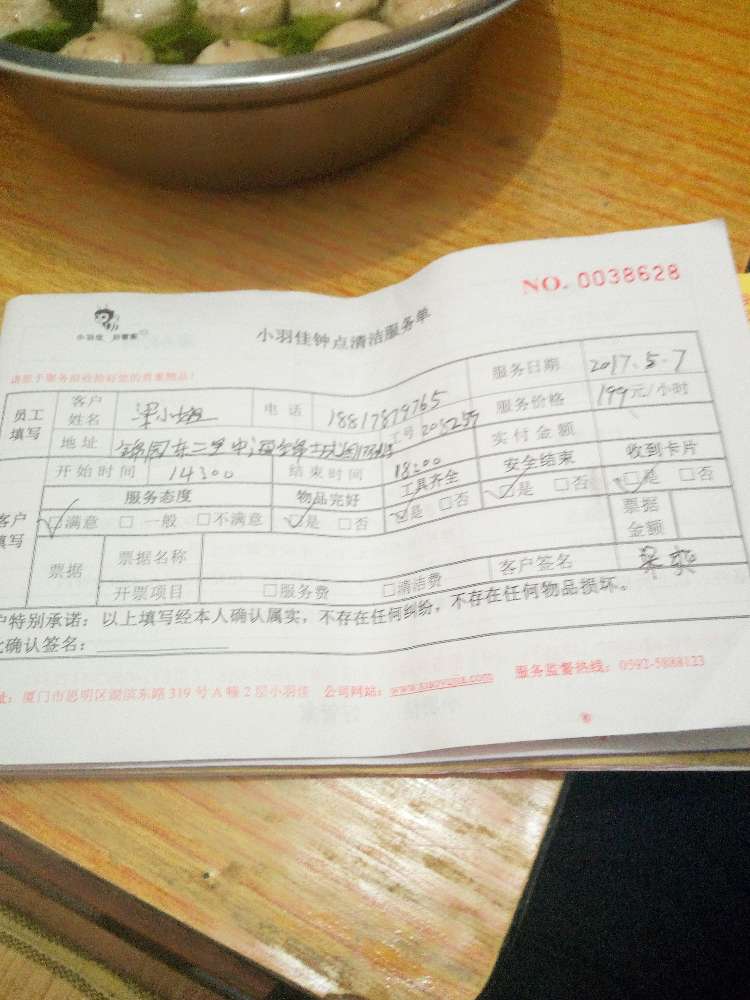 NO. 0038628
小羽佳 好管家
小羽佳钟点清洁服务单
服务日期 2017.5.7
员工填写 客户姓名 梁小姐 电话 18817879765 服务价格 199元/小时
地址 工号 203259 实付金额
开始时间 14:00 结束时间 18:00 工具齐全 安全结束 收到卡片
服务态度 物品完好 是 否 是 否 是 否
客户填写 满意 一般 不满意 是 否
票据 票据名称 票据金额
开票项目 服务费 清洁费 客户签名
户特别承诺：以上填写经本人确认属实，不存在任何纠纷，不存在任何物品损坏。
此确认签名：
址：厦门市思明区湖滨东路319号A幢2层小羽佳 公司网站： 服务监督热线：0592-5888123